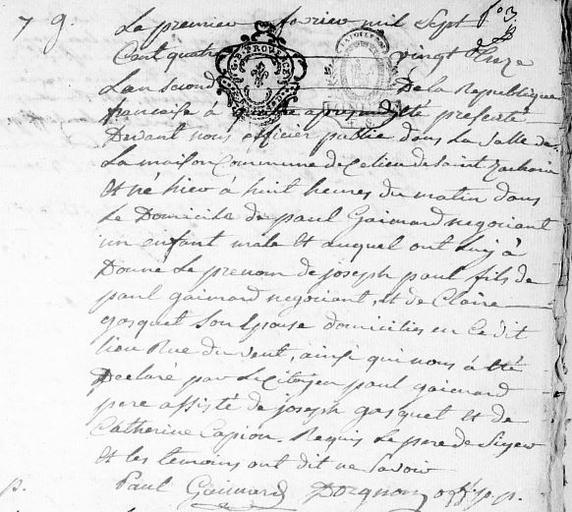 7 g. La premier février mil Sept f° 3.
Cent quatre vingt treze
Lan second De la Republique
francaise à apres midy à été presenté
Devant nous officier public dans La Salle de
La maison Commune de Ce lieu de Saint Zacharie
et né hier à huit heures du matin dans
Le Domicile de paul Gaimard negociant
un enfant male et auquel ont luy à
Donné Le prenom de joseph paul fils de
paul gaimard negociant, et de Claire
gasquet Son Epouse domiciliés en Ce dit
lieu Rue du vent, ainsi qui nous à été
Declaré par Le Citoyen paul gaimard
pere assisté de joseph gasquet et de
Catherine Capion. Requis Le pere de Signer
et les temoins ont dit ne Savoir
p. Paul Gaimard Dorgnon off. p.